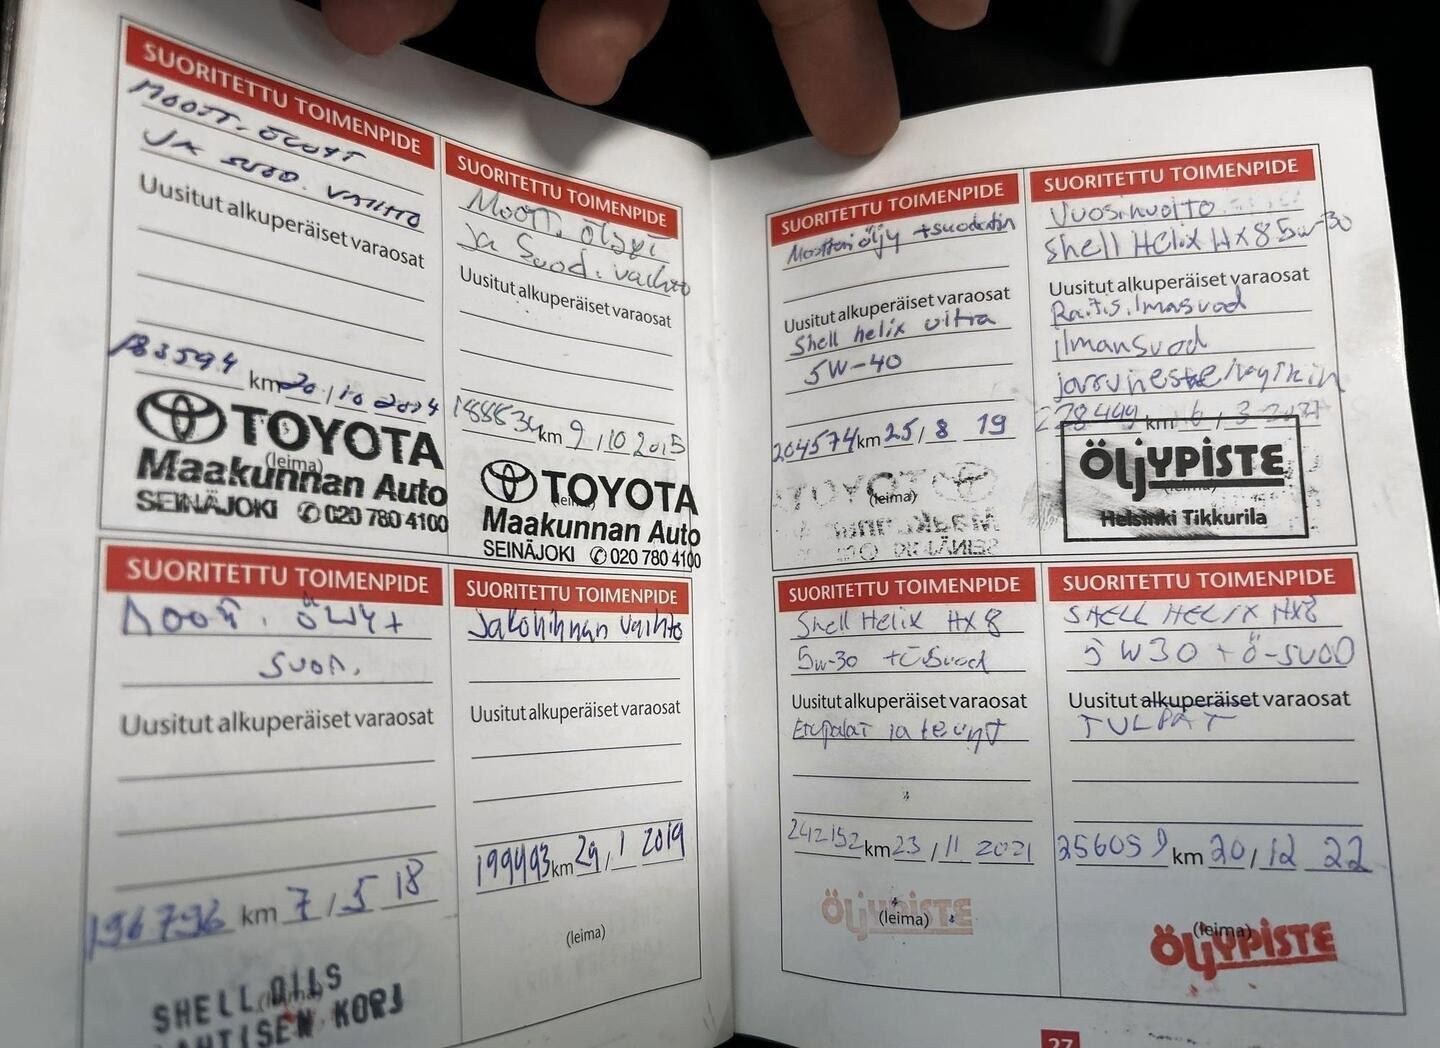 SUORITETTU TOIMENPIDE
MOOTT. ÖLJYT
JA SUOD. VAIHTO
Uusitut alkuperäiset varaosat
183594 km 20 / 10 2014
TOYOTA
(leima)
Maakunnan Auto
SEINÄJOKI ✆ 020 780 4100
SUORITETTU TOIMENPIDE
Moott. öljyt
ja Suod. vaihto
Uusitut alkuperäiset varaosat
188834 km 9 / 10 2015
TOYOTA
Maakunnan Auto
SEINÄJOKI ✆ 020 780 4100
SUORITETTU TOIMENPIDE
Moott. öljyt
suod.
Uusitut alkuperäiset varaosat
196796 km 7 / 5 18
SHELL OILS
KORJ
SUORITETTU TOIMENPIDE
Jakohihnan vaihto
Uusitut alkuperäiset varaosat
199493 km 29 / 1 2019
(leima)
SUORITETTU TOIMENPIDE
Moottoriöljy + suodatin
Uusitut alkuperäiset varaosat
Shell helix ultra
5W-40
204574 km 25 / 8 19
(leima)
SUORITETTU TOIMENPIDE
Vuosihuolto
Shell HELIX HX8 5w-30
Uusitut alkuperäiset varaosat
Raitis.ilmasuod
ilmansuod
jarruneste/
228499 km 6 / 3
ÖLJYPISTE
(leima)
Helsinki Tikkurila
SUORITETTU TOIMENPIDE
Shell Helix HX8
5w-30 + Ö-Suod
Uusitut alkuperäiset varaosat
Etupalat ja
242152 km 23 / 11 2021
ÖLJYPISTE
(leima)
SUORITETTU TOIMENPIDE
SHELL HELIX HX8
5W30 + Ö-SUOD
Uusitut alkuperäiset varaosat
TULPAT
256059 km 20 / 12 22
(leima)
ÖLJYPISTE
27